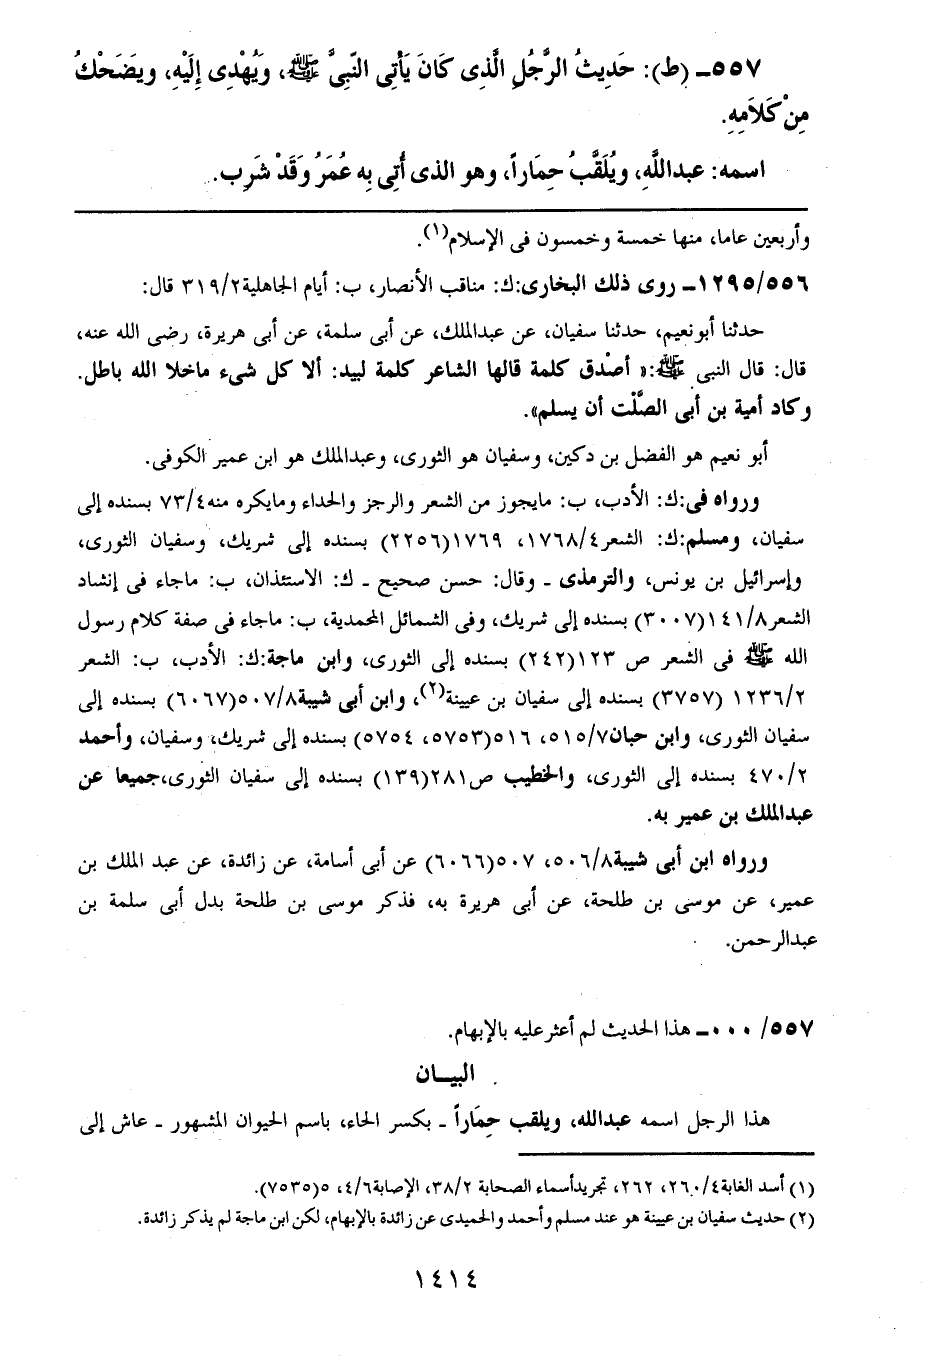 ٥٥٧ـ (ط): حَدِيثُ الرَّجُلِ الَّذِى كَانَ يَأْتِى النَّبِىَّ ﷺ، ويُهْدِى إِلَيْهِ، ويَضَحْكُ
مِنْ كَلاَمِهِ.
اسمه: عبداللَّهِ، ويُلَقَّبُ حِمَاراً، وهو الذى أُتِى بِه عُمَرُ وَقَدْ شَرِب.
وأربعين عاما، منها خمسة وخمسون فى الإسلام(١).
١٢٩٥/٥٥٦ـ روى ذلك البخارى:ك: مناقب الأنصار، ب: أيام الجاهلية٣١٩/٢ قال:
حدثنا أبونعيم، حدثنا سفيان، عن عبدالملك، عن أبى سلمة، عن أبى هريرة، رضى الله عنه،
قال: قال النبى ﷺ:« أصْدق كلمة قالها الشاعر كلمة لبيد: ألا كل شىء ماخلا الله باطل.
وكاد أمية بن أبى الصَّلْت أن يسلم».
أبو نعيم هو الفضل بن دكين، وسفيان هو الثورى، وعبدالملك هو ابن عمير الكوفى.
ورواه فى:ك: الأدب، ب: مايجوز من الشعر والرجز والحداء ومايكره منه٧٣/٤ بسنده إلى
سفيان، ومسلم:ك: الشعر١٧٦٨/٤، ١٧٦٩(٢٢٥٦) بسنده إلى شريك، وسفيان الثورى،
وإسرائيل بن يونس، والترمذى ـ وقال: حسن صحيح ـ ك: الاستئذان، ب: ماجاء فى إنشاد
الشعر١٤١/٨(٣٠٠٧) بسنده إلى شريك، وفى الشمائل المحمدية، ب: ماجاء فى صفة كلام رسول
الله ﷺ فى الشعر ص ١٢٣(٢٤٢) بسنده إلى الثورى، وابن ماجة:ك: الأدب، ب: الشعر
١٢٣٦/٢ (٣٧٥٧) بسنده إلى سفيان بن عيينة(٢)، وابن أبى شيبة٥٠٧/٨(٦٠٦٧) بسنده إلى
سفيان الثورى، وابن حبان٥١٥/٧، ٥١٦(٥٧٥٣، ٥٧٥٤) بسنده إلى شريك، وسفيان، وأحمد
٤٧٠/٢ بسنده إلى الثورى، والخطيب ص٢٨١(١٣٩) بسنده إلى سفيان الثورى،جميعا عن
عبدالملك بن عمير به.
ورواه ابن أبى شيبة٥٠٦/٨، ٥٠٧(٦٠٦٦) عن أبى أسامة، عن زائدة، عن عبد الملك بن
عمير، عن موسى بن طلحة، عن أبى هريرة به، فذكر موسى بن طلحة بدل أبى سلمة بن
عبدالرحمن.
٥٥٧/ ٠٠٠ـ هذا الحديث لم أعثرعليه بالإبهام.
البيـان
هذا الرجل اسمه عبدالله، ويلقب حِمَاراً ـ بكسر الحاء، باسم الحيوان المشهور ـ عاش إلى
(١) أسد الغابة٢٦٠/٤، ٢٦٢، تجريدأسماء الصحابة ٣٨/٢، الإصابة٤/٦، ٥(٧٥٣٥).
(٢) حديث سفيان بن عيينة هو عند مسلم وأحمد والحميدى عن زائدة بالإبهام، لكن ابن ماجة لم يذكر زائدة.
١٤١٤